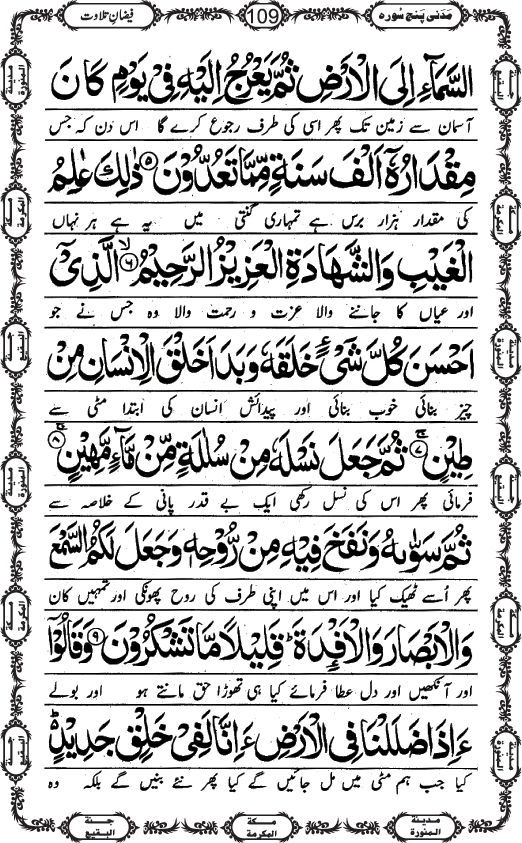 مَدَنی پَنج سُورہ
109
فیضانِ تلاوت
السَّمَآءِ اِلَى الْاَرْضِ ثُمَّ یَعْرُجُ اِلَیْهِ فِیْ یَوْمٍ كَانَ
آسمان سے زمین تک پھر اسی کی طرف رجوع کرے گا اس دن کہ جس
مِقْدَارُهٗۤ اَلْفَ سَنَةٍ مِّمَّا تَعُدُّوْنَ ۝۵ ذٰلِكَ عٰلِمُ
کی مقدار ہزار برس ہے تمہاری گنتی میں یہ ہے ہر نہاں
الْغَیْبِ وَالشَّهَادَةِ الْعَزِیْزُ الرَّحِیْمُ ۝۶ الَّذِیْۤ
اور عیاں کا جاننے والا عزت و رحمت والا وہ جس نے جو
اَحْسَنَ كُلَّ شَیْءٍ خَلَقَهٗ وَبَدَاَ خَلْقَ الْاِنْسَانِ مِنْ
چیز بنائی خوب بنائی اور پیدائش انسان کی ابتدا مٹی سے
طِیْنٍ ۝۷ ثُمَّ جَعَلَ نَسْلَهٗ مِنْ سُلٰلَةٍ مِّنْ مَّآءٍ مَّهِیْنٍ ۝۸
فرمائی پھر اس کی نسل رکھی ایک بے قدر پانی کے خلاصہ سے
ثُمَّ سَوّٰىهُ وَنَفَخَ فِیْهِ مِنْ رُّوْحِهٖ وَجَعَلَ لَكُمُ السَّمْعَ
پھر اُسے ٹھیک کیا اور اس میں اپنی طرف کی روح پھونکی اور تمہیں کان
وَالْاَبْصَارَ وَالْاَفْـِٕدَةَ ؕ قَلِیْلًا مَّا تَشْكُرُوْنَ ۝۹ وَقَالُوْۤا
اور آنکھیں اور دل عطا فرمائے کیا ہی تھوڑا حق مانتے ہو اور بولے
ءَاِذَا ضَلَلْنَا فِی الْاَرْضِ ءَاِنَّا لَفِیْ خَلْقٍ جَدِیْدٍ ؕ
کیا جب ہم مٹی میں مل جائیں گے کیا پھر نئے بنیں گے بلکہ وہ
مدینة المنورة
مكة المكرمة
جنة البقيع
مدینة المنورة
جنة البقيع
مكة المكرمة
مدینة المنورة
جنة البقيع
جنة البقيع
مكة المكرمة
مدینة المنورة
جنة البقيع
مكة المكرمة
مدینة المنورة
جنة البقيع
مكة المكرمة
مدینة المنورة